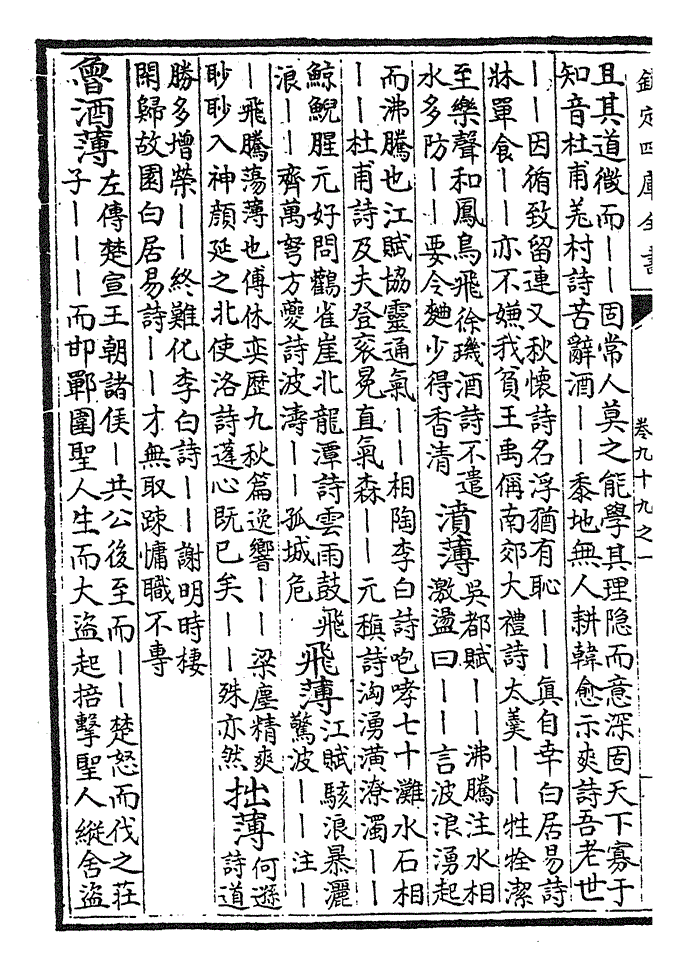 欽定四庫全書
卷九十九之一
且其道微而——固常人莫之能學其理隐而意深固天下寡于
知音杜甫羌村詩苦辭酒——黍地無人耕韓愈示爽詩吾老世
——因循致留連又秋懷詩名浮猶有恥——真自幸白居易詩
牀單食——亦不嫌我貧王禹偁南郊大禮詩太羹——牲牷潔
至樂聲和鳳鳥飛徐璣酒詩不遣
水多防——要令麯少得香清
濆薄
吳都賦——沸騰注水相
激盪曰——言波浪湧起
而沸騰也江賦協靈通氣——相陶李白詩咆哮七十灘水石相
——杜甫詩及夫登衮冕直氣森——元稹詩洶湧潢潦濁——
鯨鯢腥元好問鸛雀崖北龍潭詩雲雨鼓飛
浪——齊萬弩方夔詩波濤——孤城危
飛薄
江賦駭浪暴灑
驚波——注—
—飛騰蕩薄也傅休奕歷九秋篇逸響——梁塵精爽
眇眇入神顔延之北使洛詩蓬心既已矣——殊亦然
拙薄
何遜
詩道
勝多增榮——終難化李白詩——謝明時棲
閑歸故園白居易詩——才無取踈慵職不專
魯酒薄
左傳楚宣王朝諸侯—共公後至而——楚怒而伐之莊
子———而邯鄲圍聖人生而大盜起掊擊聖人縱舍盜